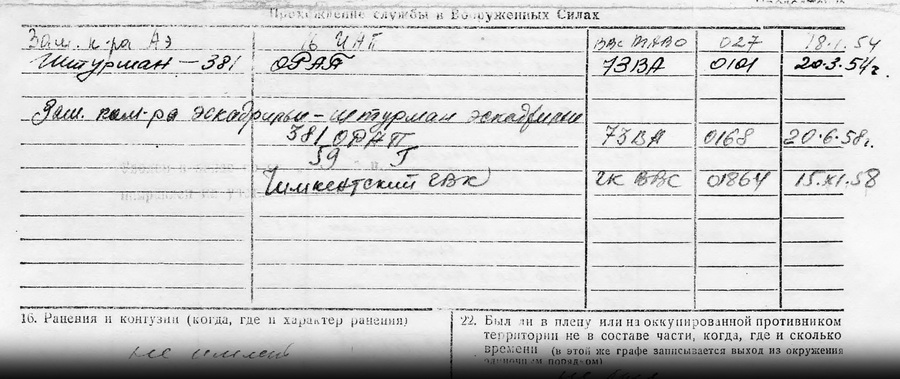 Прохождение службы в Вооруженных Силах
Зам. к-ра АЭ 16 ИАП ВВС ТАВО 027 18.1.54
Штурман – 381 ОРАП 73ВА 0101 20.3.54г.
Зам. ком-ра эскадрильи – штурман эскадрильи
381 ОРАП 73ВА 0168 20.6.58г.
59 Г
Чимкентский ГВК ГК ВВС 01864 15.XI.58
16. Ранения и контузии (когда, где и характер ранения)
не имеет
22. Был ли в плену или на оккупированной противником
территории не в составе части, когда, где и сколько
времени (в этой же графе записывается выход из окружения
одиночным порядком)